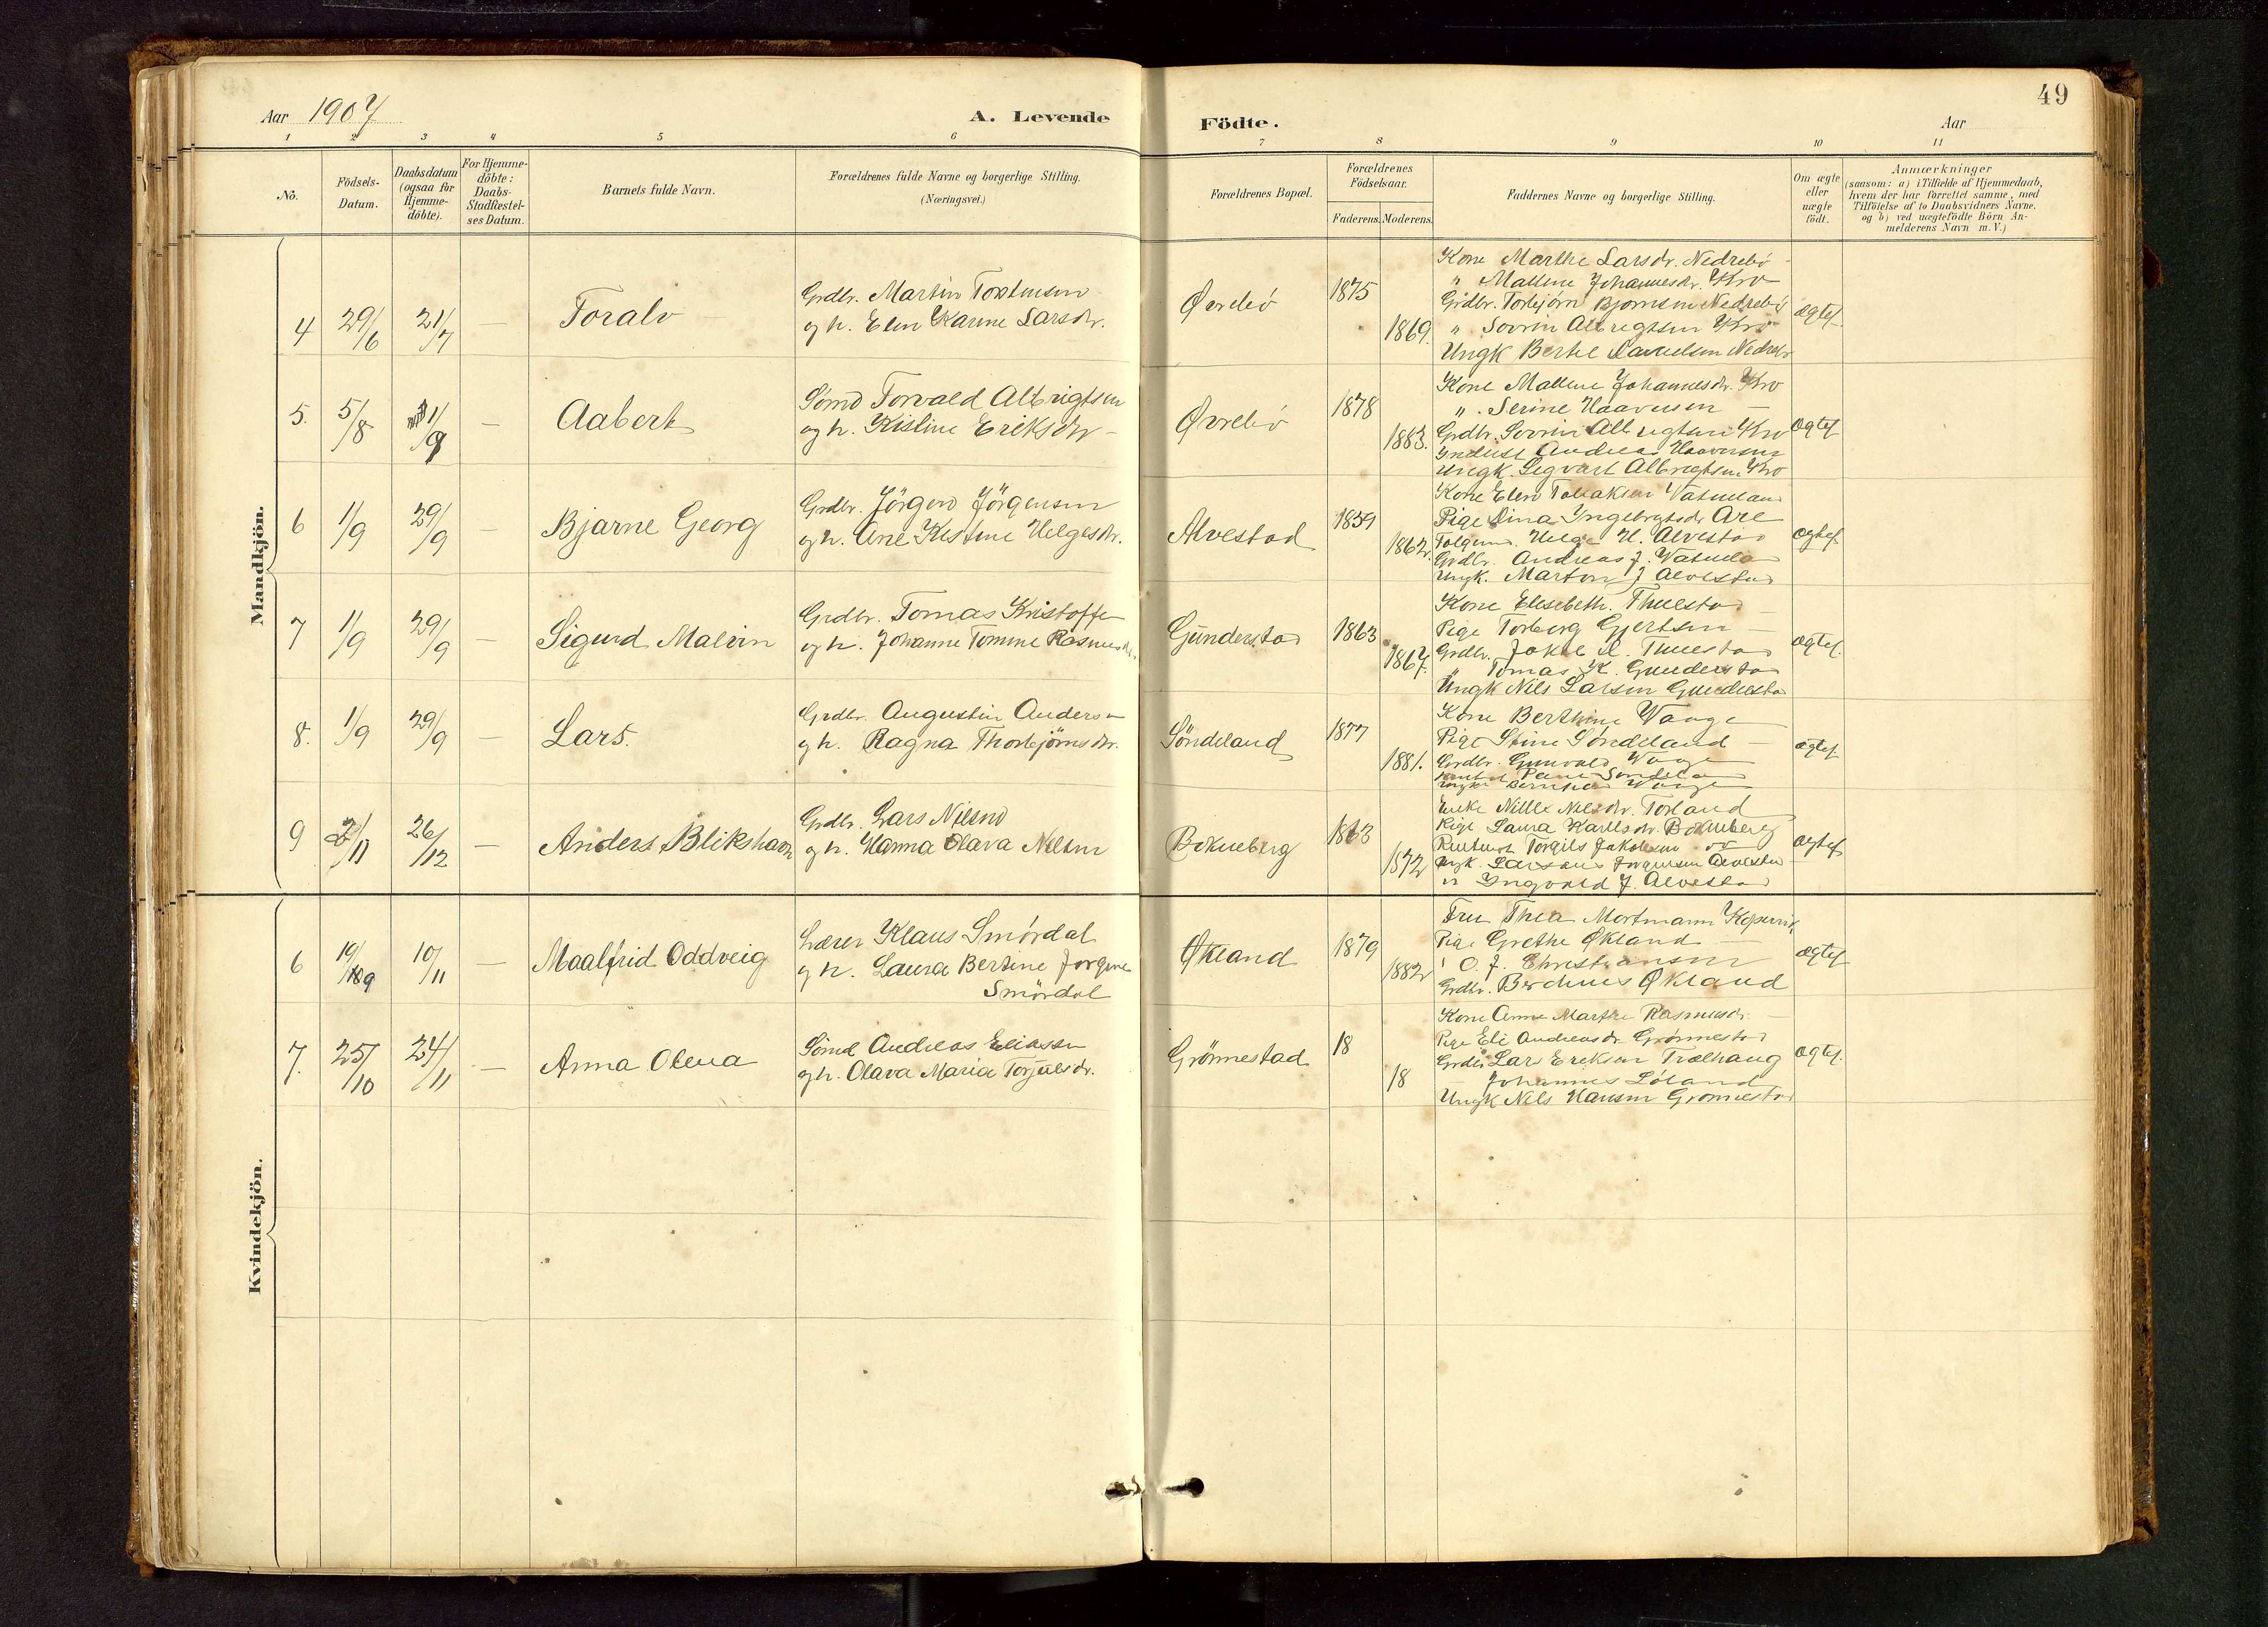 49
Aar 1907
A. Levende
Födte.
Aar
1 2 3 4 5 6 7 8 9 10 11
No.
Födsels-
Datum.
Daabsdatum
(ogsaa for
Hjemme-
döbte).
For Hjemme-
döbte:
Daabs-
Stadfæstel-
ses Datum.
Barnets fulde Navn.
Forældrenes fulde Navne og borgerlige Stilling.
(Næringsvei.)
Forældrenes Bopæl.
Forældrenes
Födselsaar.
Faderens. Moderens.
Faddernes Navne og borgerlige Stilling.
Om ægte
eller
uægte
födt.
Anmærkninger
(saasom: a) i Tilfælde af Hjemmedaab,
hvem der har forrettet samme, med
Tilföielse af to Daabsvidners Navne.
og b) ved uægtefödte Börn An-
melderens Navn m. V.)
Mandkjön.
4 29/6 21/7 — Toralv
Grdbr. Martin Torstensen
og h. Elen Karine Larsdr.
Øvrebö 1875 1869.
Kone Marthe Larsdr. Nedrebö
" Malline Johannesdr. Kro
Grdbr. Torbjörn Bjornsen Nedrebö
" Sovrin Albregtsen Kro
Ungk Bertel Danielsen Nedrebö
ægtef.
5. 5/8 1/9 — Aabert
Sömd Torvald Albrigtsen
og h. Kistine Eriksdr
Øvrebö 1878 1883.
Kone Malline Johannesdr. Kro
" Serine Haavorsen —
Grdbr. Sovrin Albregtsen Kro
Andreas Haavorsen
Ungk. Sigvart Albregtsen Kro
ægtef
6 1/9 29/9 — Bjarne Georg
Grdbr. Jörgen Jörgensen
og h. Ane Kistine Helgesdr.
Alvestad 1859 1862.
Kone Elen Tollaksen Vatneland
Pige Lina Ingebrigtsdr Are
Helge H. Alvestad
Grdbr. Andreas J. Vatnela
Ungk. Marton J Alvestad
ægtef
7 1/9 29/9 — Sigurd Malvin
Grdbr. Tomas Kristoffe
og h. Johanne Tomine Rasmusdr.
Gunderstad 1863 1867.
Kone Elesebeth. Thuestad
Pige Torborg Gjertsen
Grdbr. Jakob A. Thuestad
" Tomas K. Gunderstad
Ungk Nils Larsen Gunderstad
ægtef.
8. 1/9 29/9 — Lars.
Grdbr. Augustin Anders
og h. Ragna Thorbjörnsdr.
Söndeland 1877 1881.
Kone Berthine Vaage
Pige Stine Söndeland —
Grdbr. Gunvald Vaage
ægtef.
9 2/11 26/12 — Anders Blikshavn
Grdbr. Lars Nilsen
og h. Hanna Olava Nilsen
Bokneberg 1863 1872
Enke Nille Nilsdr. Torland
Pige Laura Karlsdr. Bokneberg
Torgils Jakobsen
Ungk. Larsens Jorgensen Alvestad
" Ingvald J. Alvestad
ægtef.
Kvindekjön.
6 19/9 10/11 — Maalfrid Oddveig
Lærer Klaus Smördal
og h. Laura Bertine Jorgine
Smördal
Økland 1879 1882
Fru Thea Mortmann Kopervik
Pige Grethe Økland —
O. J. Christiansen
Grdbr. Berdines Økland
ægtef
7. 25/10 24/11 — Anna Olena
Sömd Andreas Eliassen
og h. Olava Maria Torjulsdr.
Grönnestad 18 18
Kone Anne Marthe Rasmusdr. —
Pige Eli Andreasdr Grönnestad
Grdbr Lars Eriksen Trælhaug
— Johannes Löland
Ungk Nils Hansen Gronnestad
ægtef.